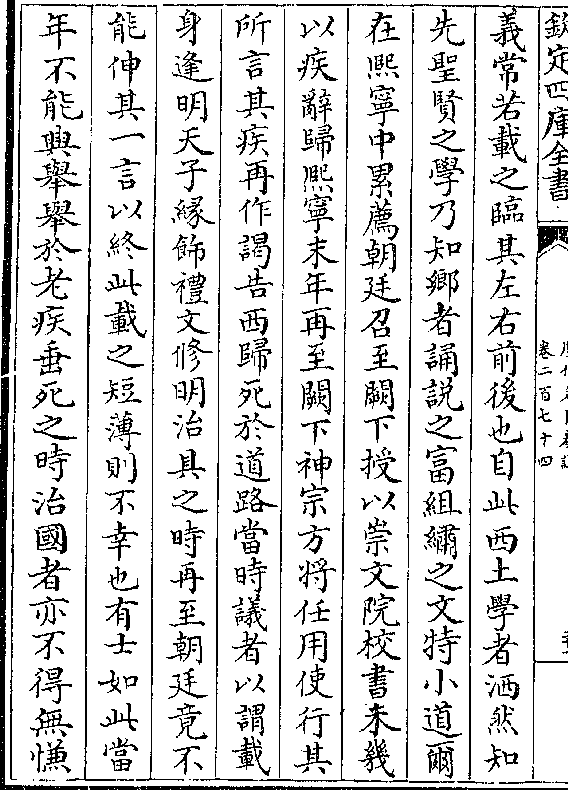 欽定四庫全書
卷二百七十四
義常若載之臨其左右前後也自此西土學者洒然知
先聖賢之學乃知鄉者誦説之富組繡之文特小道爾
在熙寧中累薦朝廷召至闕下授以崇文院校書未幾
以疾辭歸熙寧末年再至闕下神宗方將任用使行其
所言其疾再作謁告西歸死於道路當時議者以謂載
身逢明天子緣飾禮文修明治具之時再至朝廷竟不
能伸其一言以終此載之短薄則不幸也有士如此當
年不能興舉舉於老疾垂死之時治國者亦不得無慊